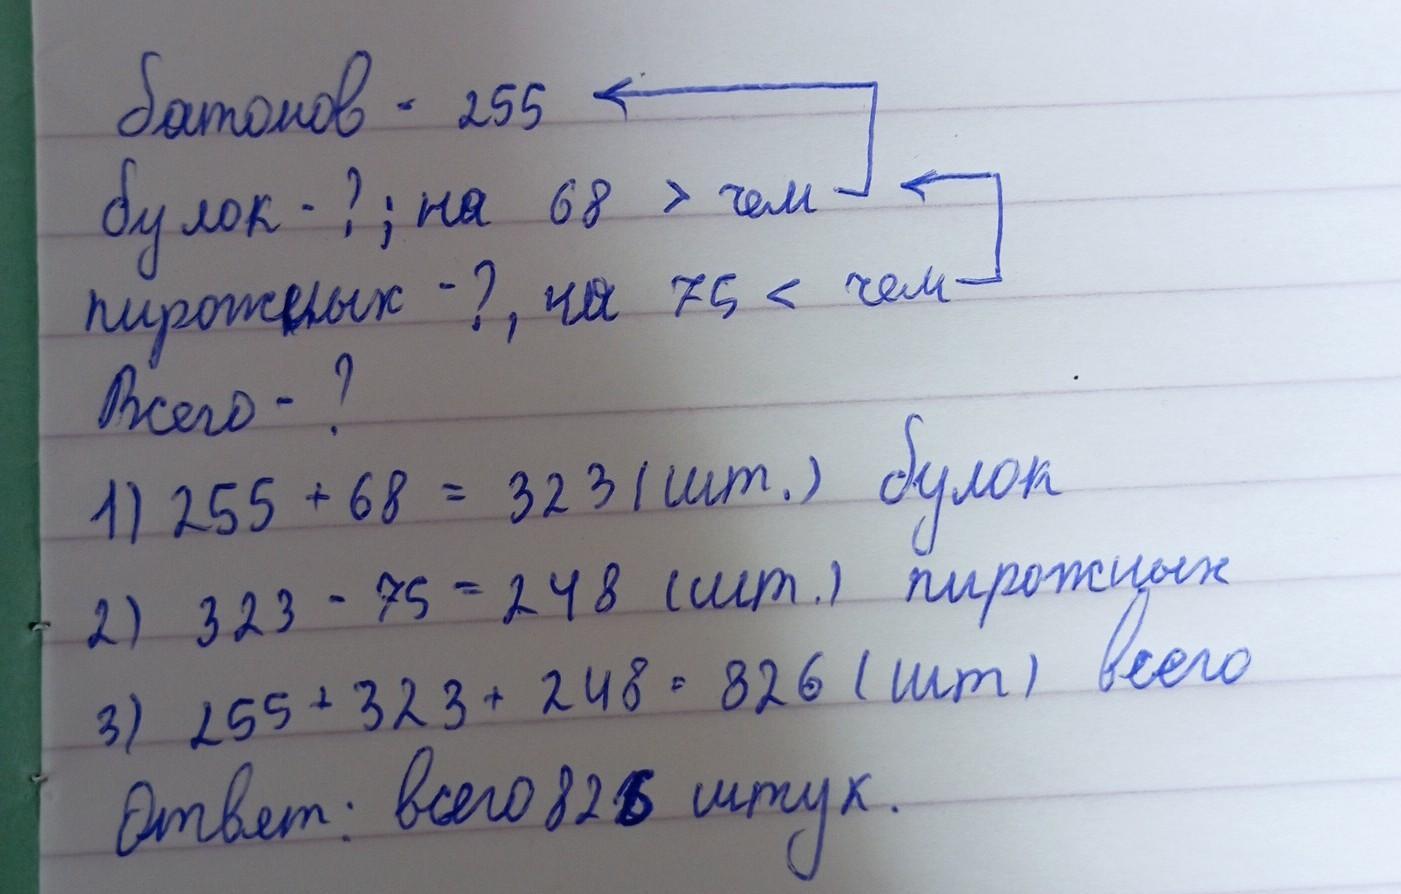 батонов - 255
булок - ?; на 68 > чем
пирожных - ?, на 75 < чем
Всего - ?
1) 255 + 68 = 323 (шт.) булок
2) 323 - 75 = 248 (шт.) пирожных
3) 255 + 323 + 248 = 826 (шт) всего
Ответ: всего 826 штук.